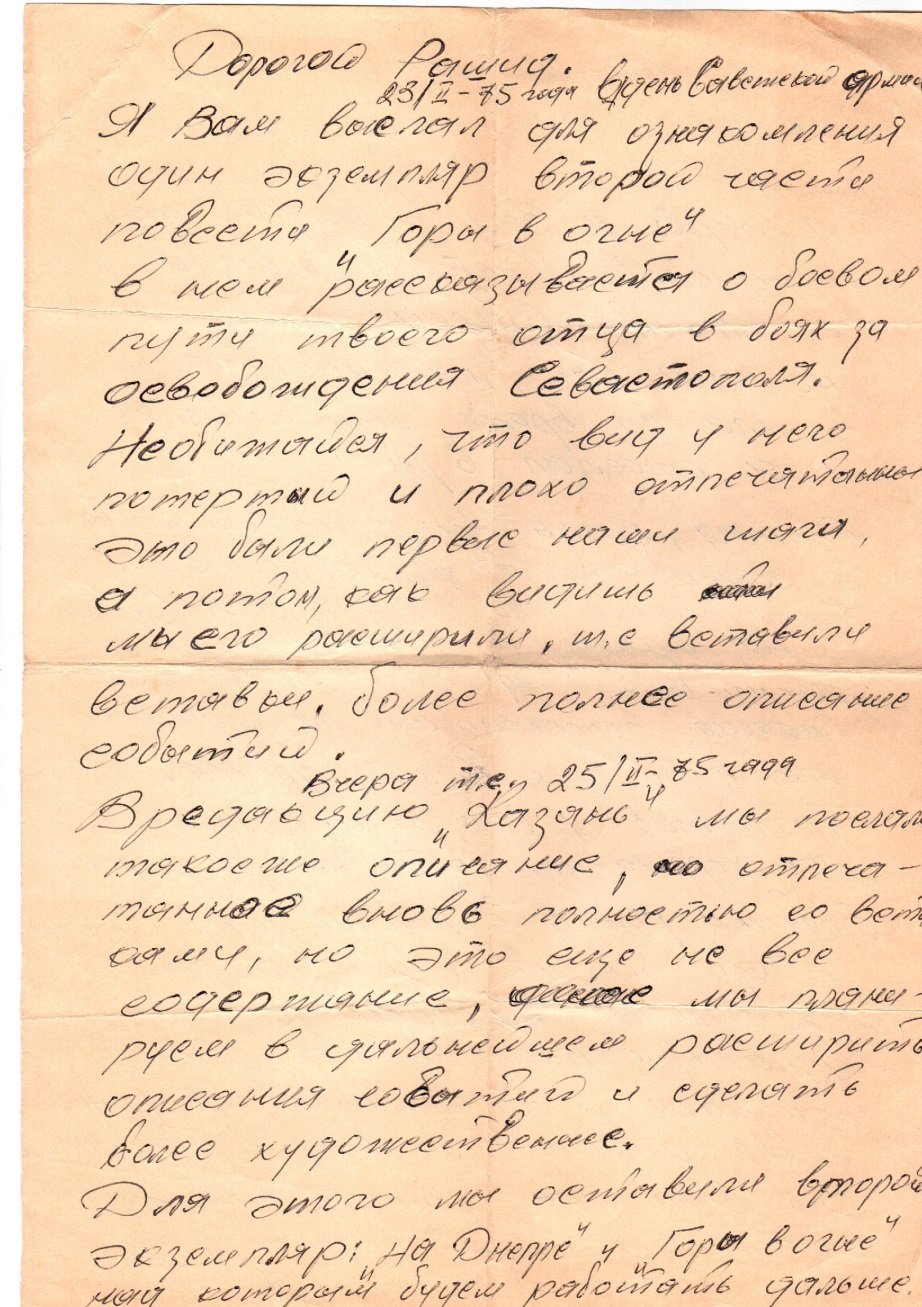 Дорогой Рашид.
23/II-75 года в день Саветской арми
Я Вам выслал для ознакомления
один экземпляр второй части
повести „Горы в огне"
в нем рассказывается о боевом
пути твоего отца в боях за
освобождения Севастополя.
Необижайся, что вид у него
потертый и плохо отпечатанный
это были первые наши шаги,
а потом, как видишь
мы его расширили, т.е вставили
вставки. более полное описание
событий.
Вчера т.е. 25/II-75 года
В редакцию „Казань" мы послали
такоеже описание, но отпеча-
танное вновь полностью со вст
ками, но это еще не все
содержание, мы плани-
руем в дальнейшем расширить
описания событий и сделать
более художественнее.
Для этого мы оставили второй
экземпляр: „На Днепре" и „Горы в огне"
над которым будем работать дальше.